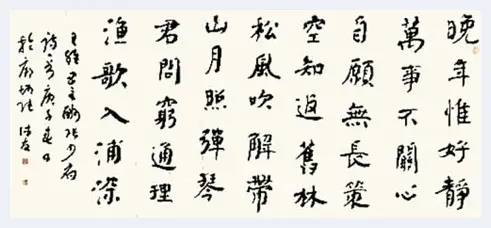 晚年惟好靜
萬事不關心
自顧無長策
空知返舊林
松風吹解帶
山月照彈琴
君問窮通理
漁歌入浦深
王維酬張少府
詩庚子春日
於廊坊